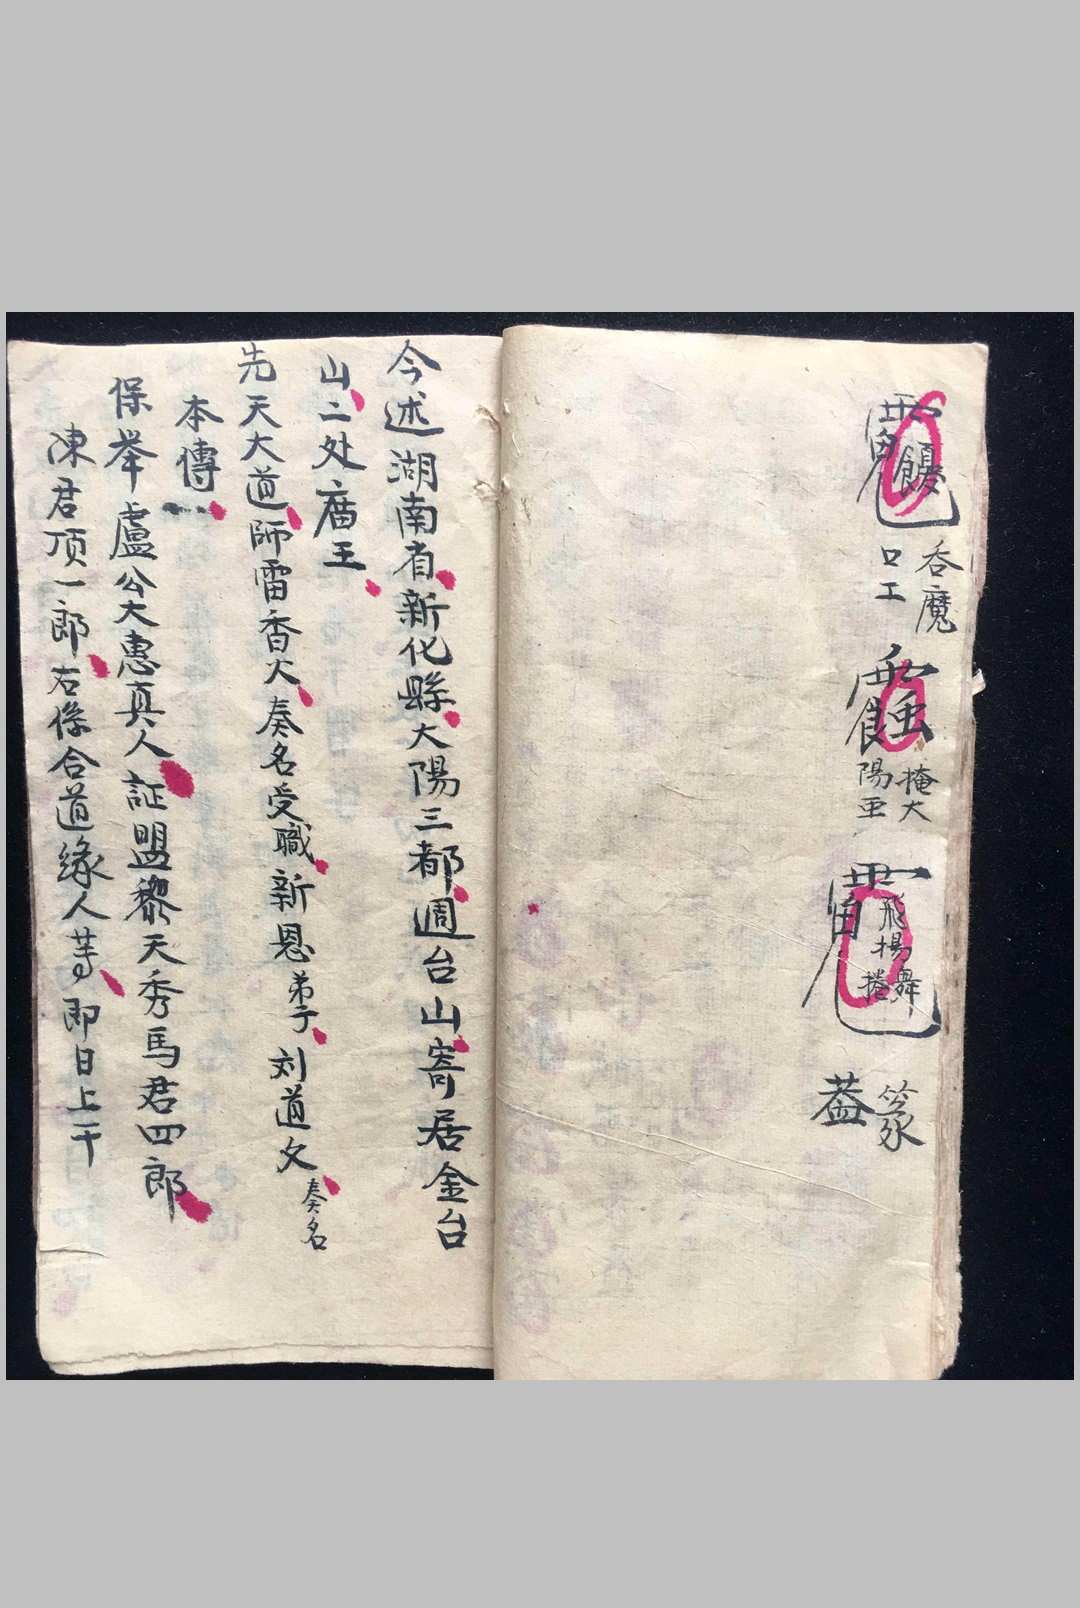 吞魔
口工
掩大
陽重
飛揚
捲舞
篆
蓋
今述湖南省新化縣大陽三都週台山寄居金台
山二处廟王
先天大道師雷香火奏名受職新恩弟子刘道文奏名
本傳
保举盧公大惠真人証盟黎天秀馬君四郎
陳君顶一郎右係合道緣人等即日上干